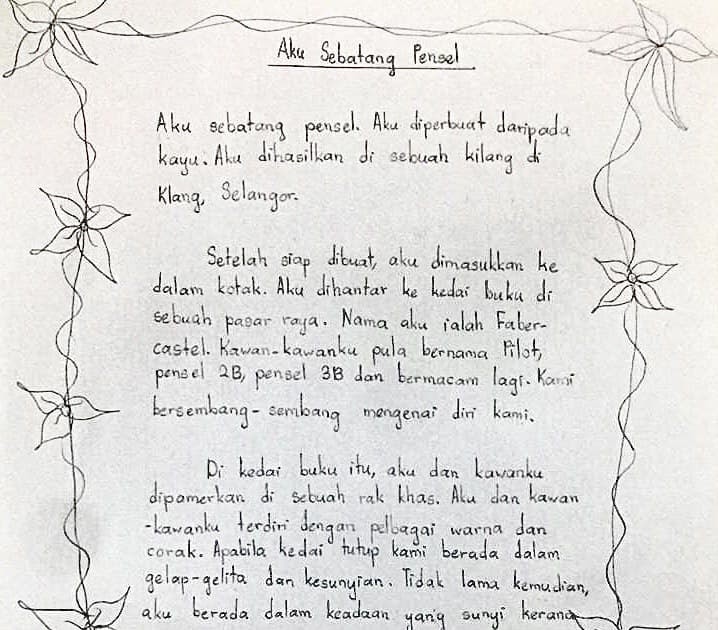 Aku Sebatang Pensel
Aku sebatang pensel. Aku diperbuat daripada
kayu. Aku dihasilkan di sebuah kilang di
Klang, Selangor.
Setelah siap dibuat, aku dimasukkan ke
dalam kotak. Aku dihantar ke kedai buku di
sebuah pasar raya. Nama aku ialah Faber-
castel. Kawan-kawanku pula bernama Pilot,
pensel 2B, pensel 3B dan bermacam lagi. Kami
bersembang-sembang mengenai diri kami.
Di kedai buku itu, aku dan kawanku
dipamerkan di sebuah rak khas. Aku dan kawan
-kawanku terdiri dengan pelbagai warna dan
corak. Apabila kedai tutup kami berada dalam
gelap-gelita dan kesunyian. Tidak lama kemudian,
aku berada dalam keadaan yang sunyi kerana